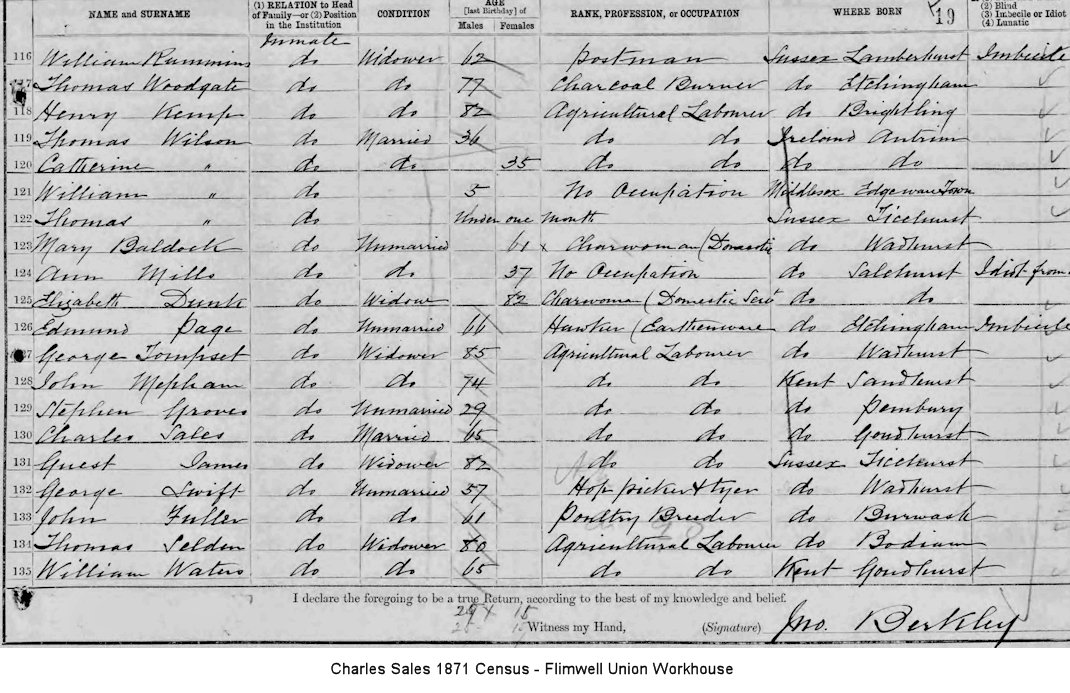 (2) Blind
(3) Imbecile or Idiot
(4) Lunatic
NAME and SURNAME (1) RELATION to Head of Family—or (2) Position in the Institution CONDITION AGE [last Birthday] of Males Females RANK, PROFESSION, or OCCUPATION WHERE BORN 19
Inmate
116 William Rummins do Widower 62 Postman Sussex Lamberhurst Imbecile
117 Thomas Woodgate do do 77 Charcoal Burner do Etchingham
118 Henry Kemp do do 82 Agricultural Labourer do Brightling
119 Thomas Wilson do Married 36 do do Ireland Antrim
120 Catherine " do do 35 do do do do
121 William " do 5 No Occupation Middlesex Edgeware Town
122 Thomas " do Under one month Sussex Ticehurst
123 Mary Baldock do Unmarried 61 x Charwoman (Domestic do Wadhurst
124 Ann Mills do do 37 No Occupation do Salehurst Idiot from
125 Elizabeth Dunk do Widow 82 Charwoman (Domestic Servt do do
126 Edmund Page do Unmarried 66 Hawker (Earthenware do Etchingham Imbecile
127 George Tompset do Widower 85 Agricultural Labourer do Wadhurst
128 John Mepham do do 74 do do Kent Sandhurst
129 Stephen Groves do Unmarried 29 do do do Pembury
130 Charles Sales do Married 65 do do do Goudhurst
131 Guest James do Widower 82 do do Sussex Ticehurst
132 George Swift do Unmarried 57 Hop picker & tyer do Wadhurst
133 John Fuller do do 61 Poultry Breeder do Burwash
134 Thomas Selden do Widower 80 Agricultural Labourer do Bodiam
135 William Waters do do 65 do do Kent Goudhurst
I declare the foregoing to be a true Return, according to the best of my knowledge and belief.
Witness my Hand, (Signature) Jno. Berkley
Charles Sales 1871 Census - Flimwell Union Workhouse